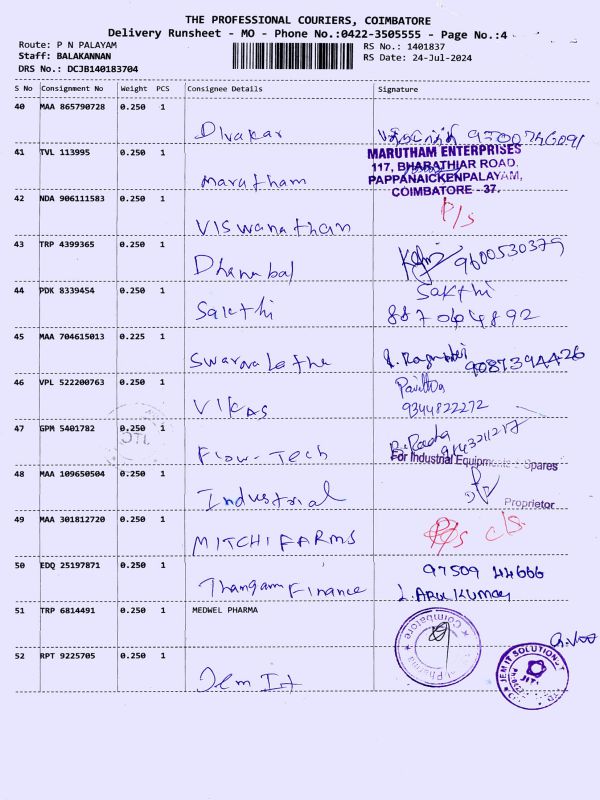 THE PROFESSIONAL COURIERS, COIMBATORE
Delivery Runsheet - MO - Phone No.:0422-3505555 - Page No.:4
Route: P N PALAYAM
RS No.: 1401837
Staff: BALAKANNAN
RS Date: 24-Jul-2024
DRS No.: DCJB140183704
S No Consignment No Weight PCS Consignee Details Signature
40 MAA 865790728 0.250 1
Divakar
41 TVL 113995 0.250 1
Marutham
MARUTHAM ENTERPRISES
117, BHARATHIAR ROAD,
PAPPANAICKENPALAYAM,
COIMBATORE - 37.
42 NDA 906111583 0.250 1
Viswanathan P/s
43 TRP 4399365 0.250 1
Dhanabal 9600530379
44 PDK 8339454 0.250 1
Sakthi
Sakthi
45 MAA 704615013 0.225 1
46 VPL 522200763 0.250 1
Vikas
9344822272
47 GPM 5401782 0.250 1
Flow-Tech
For Industrial Equipments Spares
48 MAA 109650504 0.250 1
Industrial
Proprietor
49 MAA 301812720 0.250 1
MITCHI FARMS
50 EDQ 25197871 0.250 1
97509 44666
Thangam Finance L. ARUL KUMAR
51 TRP 6814491 0.250 1 MEDWEL PHARMA
Coimbatore
Pharma
52 RPT 9225705 0.250 1
Jem It
JEM IT SOLUTION
JITS